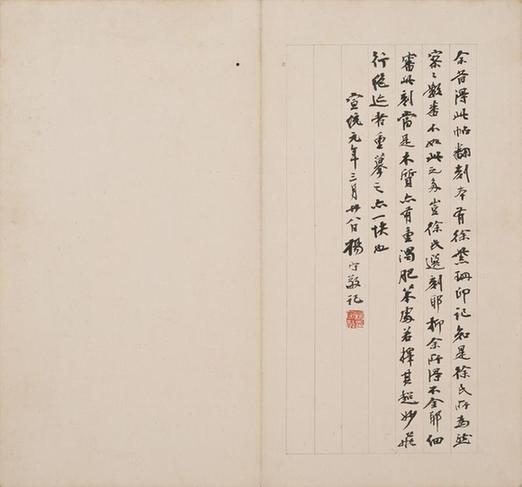 余昔得此帖翻刻本有徐紫珊印記知是徐氏所為然
寥〻數番不如此之多豈徐氏選刻耶抑余所得不全耶細
審此刻當是木質亦有重濁肥笨處若擇其超妙
行絕迹者重摹之亦一快也
宣統元年三月廿八日楊守敬記